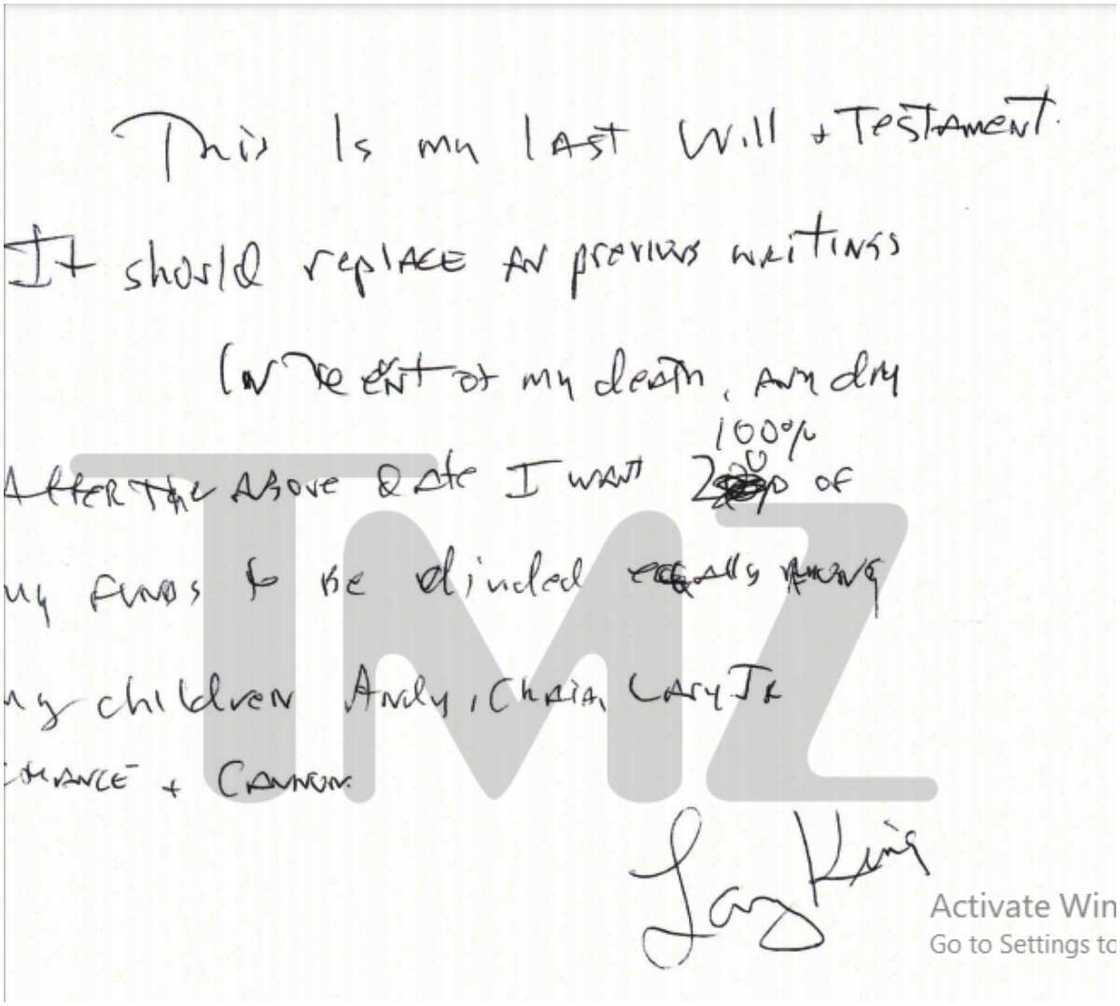 This Is my lAST Will + TESTAMENT.
It should replACE All previous writings
In the event of my death, any day
100%
AfteR The Above date I want of
my FUNDS to be divided equally Among
my children Andy, Chaia, Larry Jr
CHANCE + CANNON.
Larry King
TMZ
Activate Win
Go to Settings to